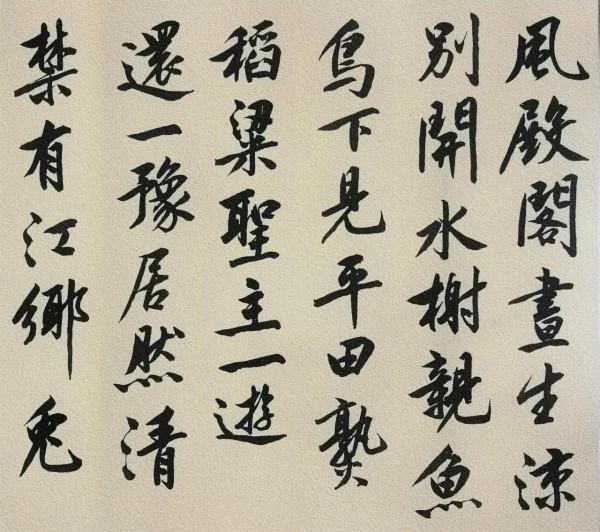 風殿閣晝生涼
別開水榭親魚
鳥下見平田熟
稻粱聖主一遊
還一豫居然清
禁有江鄉兎